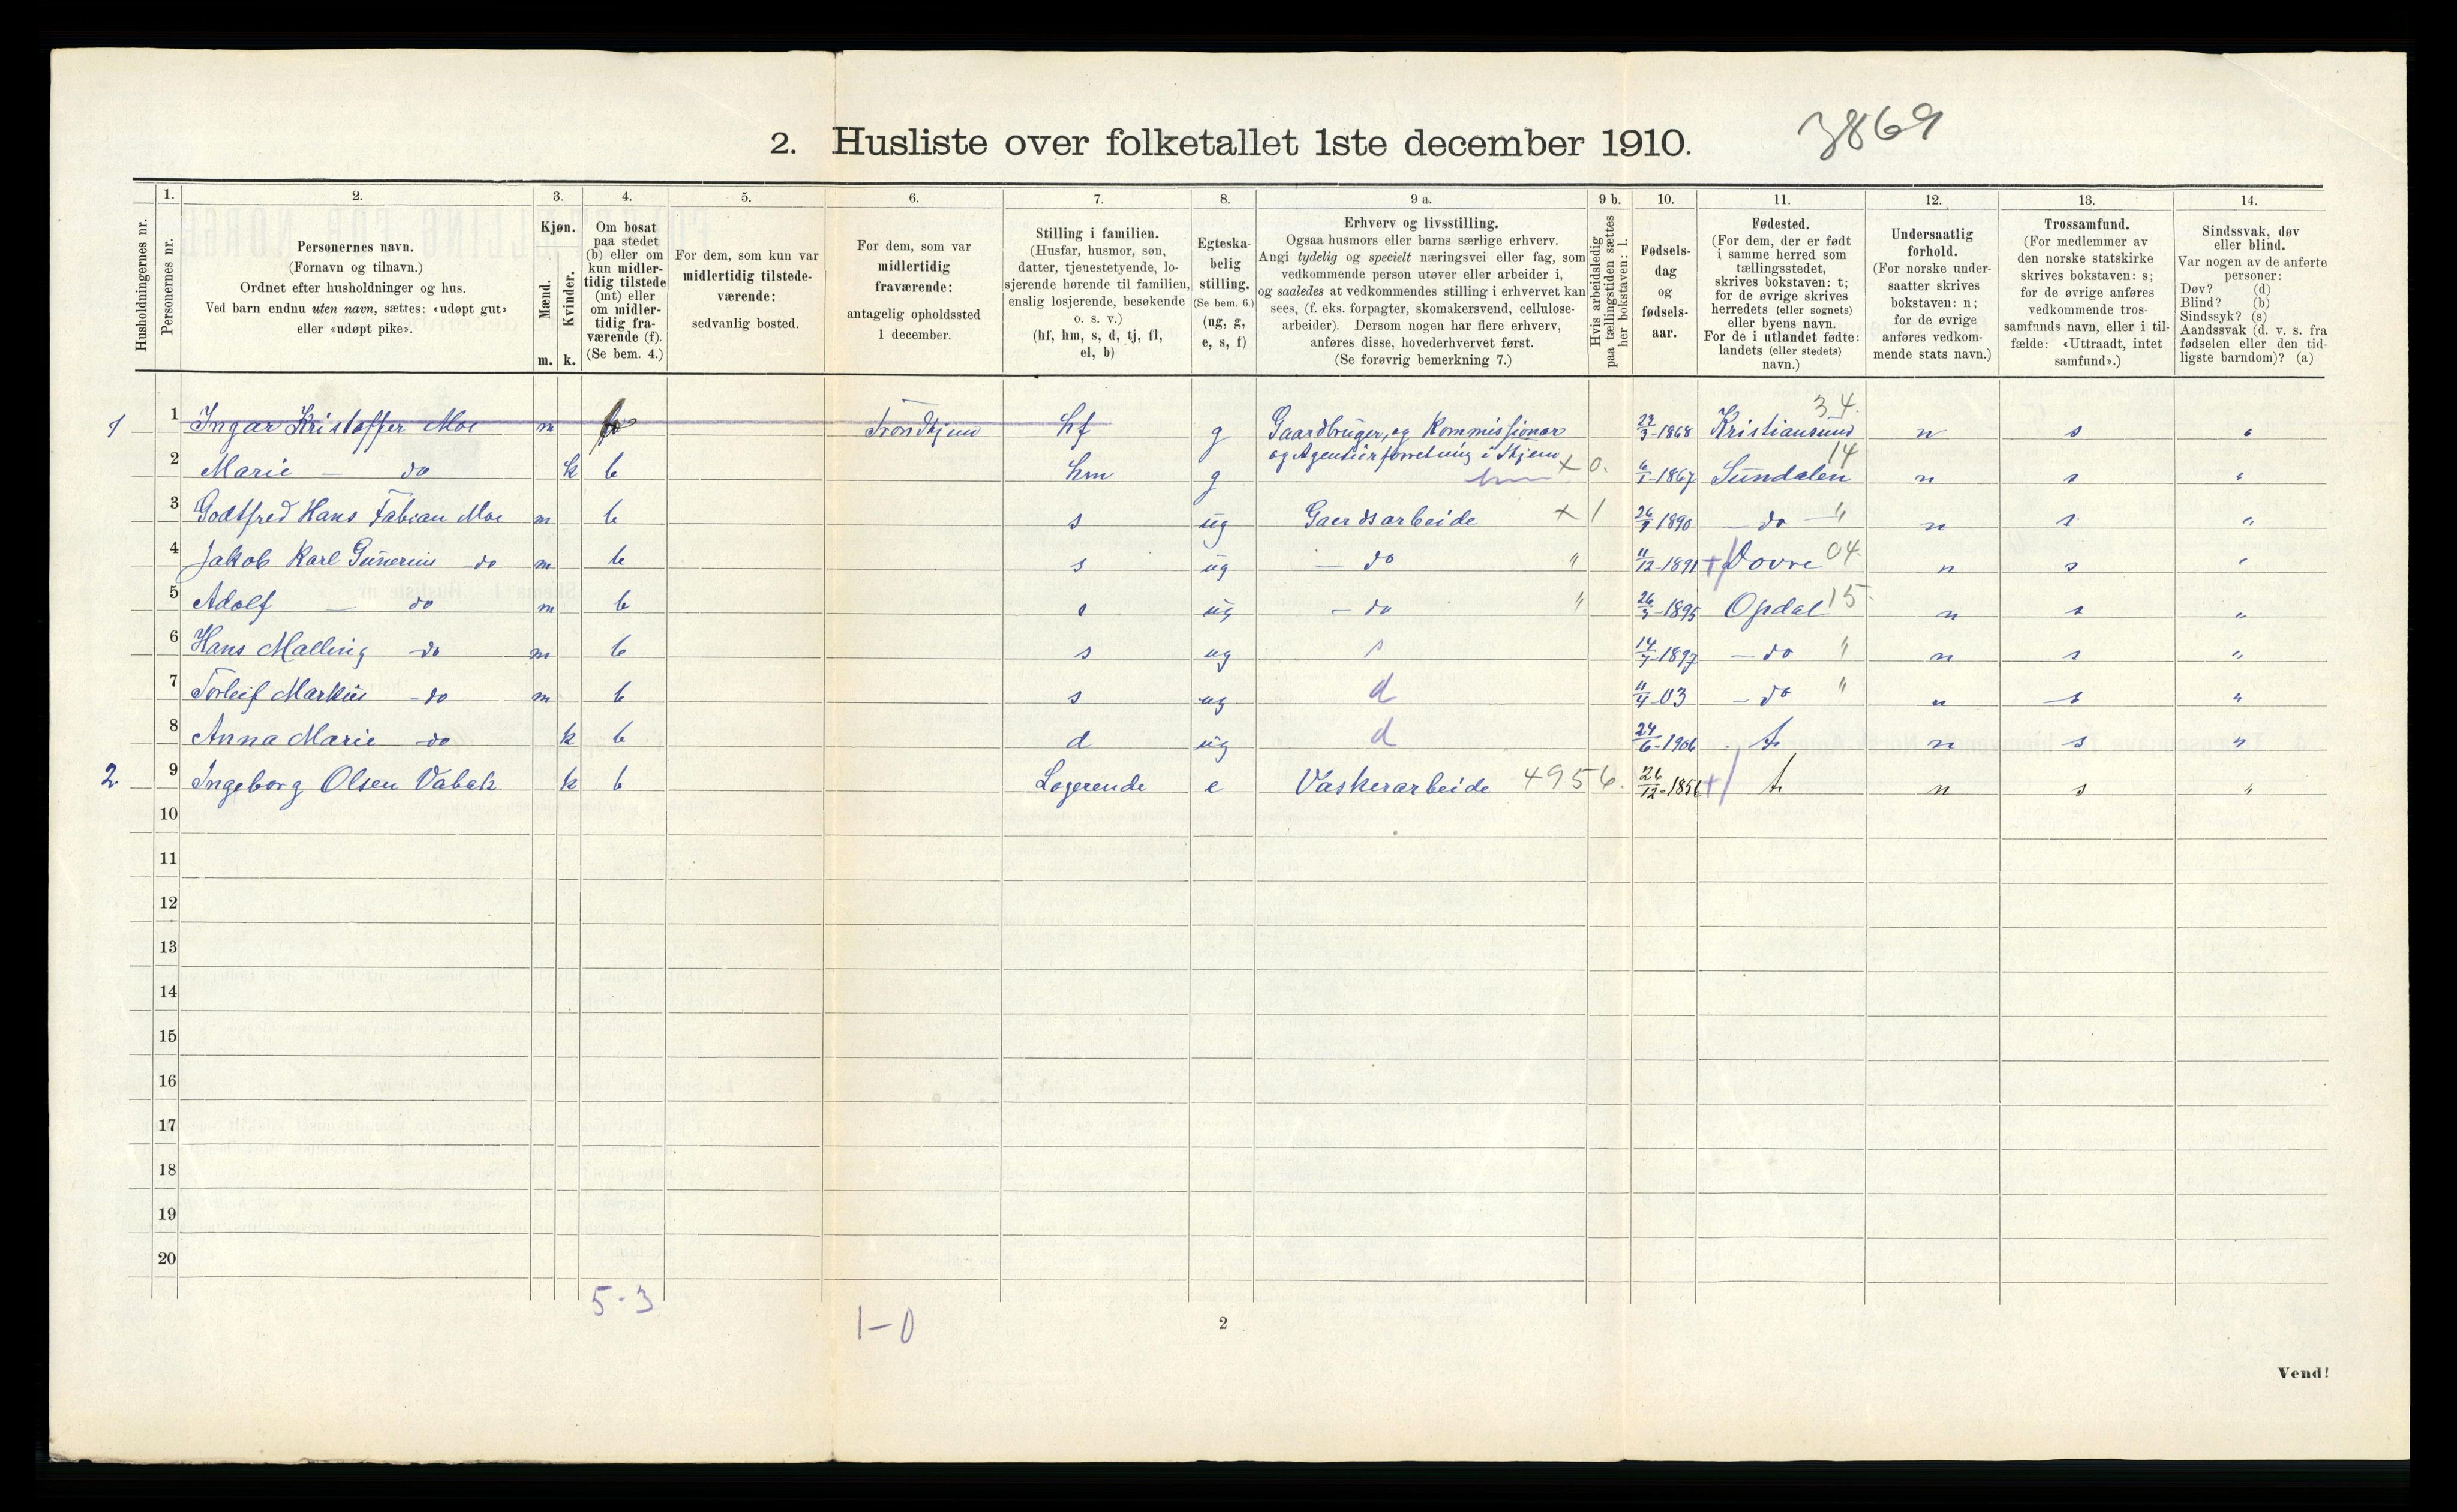 2. Husliste over folketallet 1ste december 1910. 3869
Husholdningernes nr.
1. Personernes nr.
2. Personernes navn.
(Fornavn og tilnavn.)
Ordnet efter husholdninger og hus.
Ved barn endnu uten navn, sættes: «udøpt gut»
eller «udøpt pike».
3. Kjøn.
Mænd. m.
Kvinder. k.
4. Om bosat
paa stedet
(b) eller om
kun midler-
tidig tilstede
(mt) eller
om midler-
tidig fra-
værende (f).
(Se bem. 4.)
5. For dem, som kun var
midlertidig tilstede-
værende:
sedvanlig bosted.
6. For dem, som var
midlertidig
fraværende:
antagelig opholdssted
1 december.
7. Stilling i familien.
(Husfar, husmor, søn,
datter, tjenestetyende, lo-
sjerende hørende til familien,
enslig losjerende, besøkende
o. s. v.)
(hf, hm, s, d, tj, fl,
el, b)
8. Egteska-
belig
stilling.
(Se bem. 6.)
(ug, g,
e, s, f)
9 a. Erhverv og livsstilling.
Ogsaa husmors eller barns særlige erhverv.
Angi tydelig og specielt næringsvei eller fag, som
vedkommende person utøver eller arbeider i,
og saaledes at vedkommendes stilling i erhvervet kan
sees, (f. eks. forpagter, skomakersvend, cellulose-
arbeider). Dersom nogen har flere erhverv,
anføres disse, hovederhvervet først.
(Se forøvrig bemerkning 7.)
9 b. Hvis arbeidsledig
paa tællingstiden sættes
her bokstaven: l.
10. Fødsels-
dag
og
fødsels-
aar.
11. Fødested.
(For dem, der er født
i samme herred som
tællingsstedet,
skrives bokstaven: t;
for de øvrige skrives
herredets (eller sognets)
eller byens navn.
For de i utlandet fødte:
landets (eller stedets)
navn.)
12. Undersaatlig
forhold.
(For norske under-
saatter skrives
bokstaven: n;
for de øvrige
anføres vedkom-
mende stats navn.)
13. Trossamfund.
(For medlemmer av
den norske statskirke
skrives bokstaven: s;
for de øvrige anføres
vedkommende tros-
samfunds navn, eller i til-
fælde: «Uttraadt, intet
samfund».)
14. Sindssvak, døv
eller blind.
Var nogen av de anførte
personer:
Døv? (d)
Blind? (b)
Sindssyk? (s)
Aandssvak (d. v. s. fra
fødselen eller den tid-
ligste barndom)? (a)
1 1 Ingar Kristoffer Moe m Trondhjem hf g Gaardbruger, og Kommissionær 1868 Kristiansund 34. n s "
og Agentiirforretning i Thjem
2 Marie — do k b hm g hm × 0. 6/1-1867 Sundalen 14 n s "
3 Godtfred Hans Fabian Moe m b s ug Gaardsarbeide × 1 1890 — do — " n s "
4 Jakob Karl Gunerius do m b s ug — do " 11/12-1891 + Dovre 04. n s "
5 Adolf — do m b s ug — do " 26/3-1895 Opdal 15. n s "
6 Hans Malling do m b s ug s 1897 — do " n s "
7 Torleif Markus do m b s ug d 11/4-03 — do " n s "
8 Anna Marie do k b d ug d 24/6-1906 t n s "
2 9 Ingeborg Olsen Vabak k b Logerende e Vaskerarbeide 4956. 26/12-1856 + t n s "
10
11
12
13
14
15
16
17
18
19
20
5-3
1-0
2
Vend!